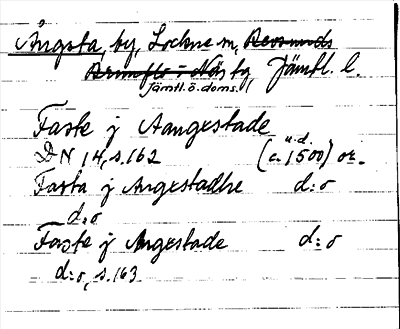 Ångsta, by, Lockne sn, Revsunds
Brunflo i Näs tg, Jämtl. l.
Jämtl. ö. doms.
Faste j Aangestade
u.d.
DN 14, s. 162 (c. 1500) or.
Fasta j Angestadhe d:o
d:o
Faste j Angestade d:o
d:o, s. 163